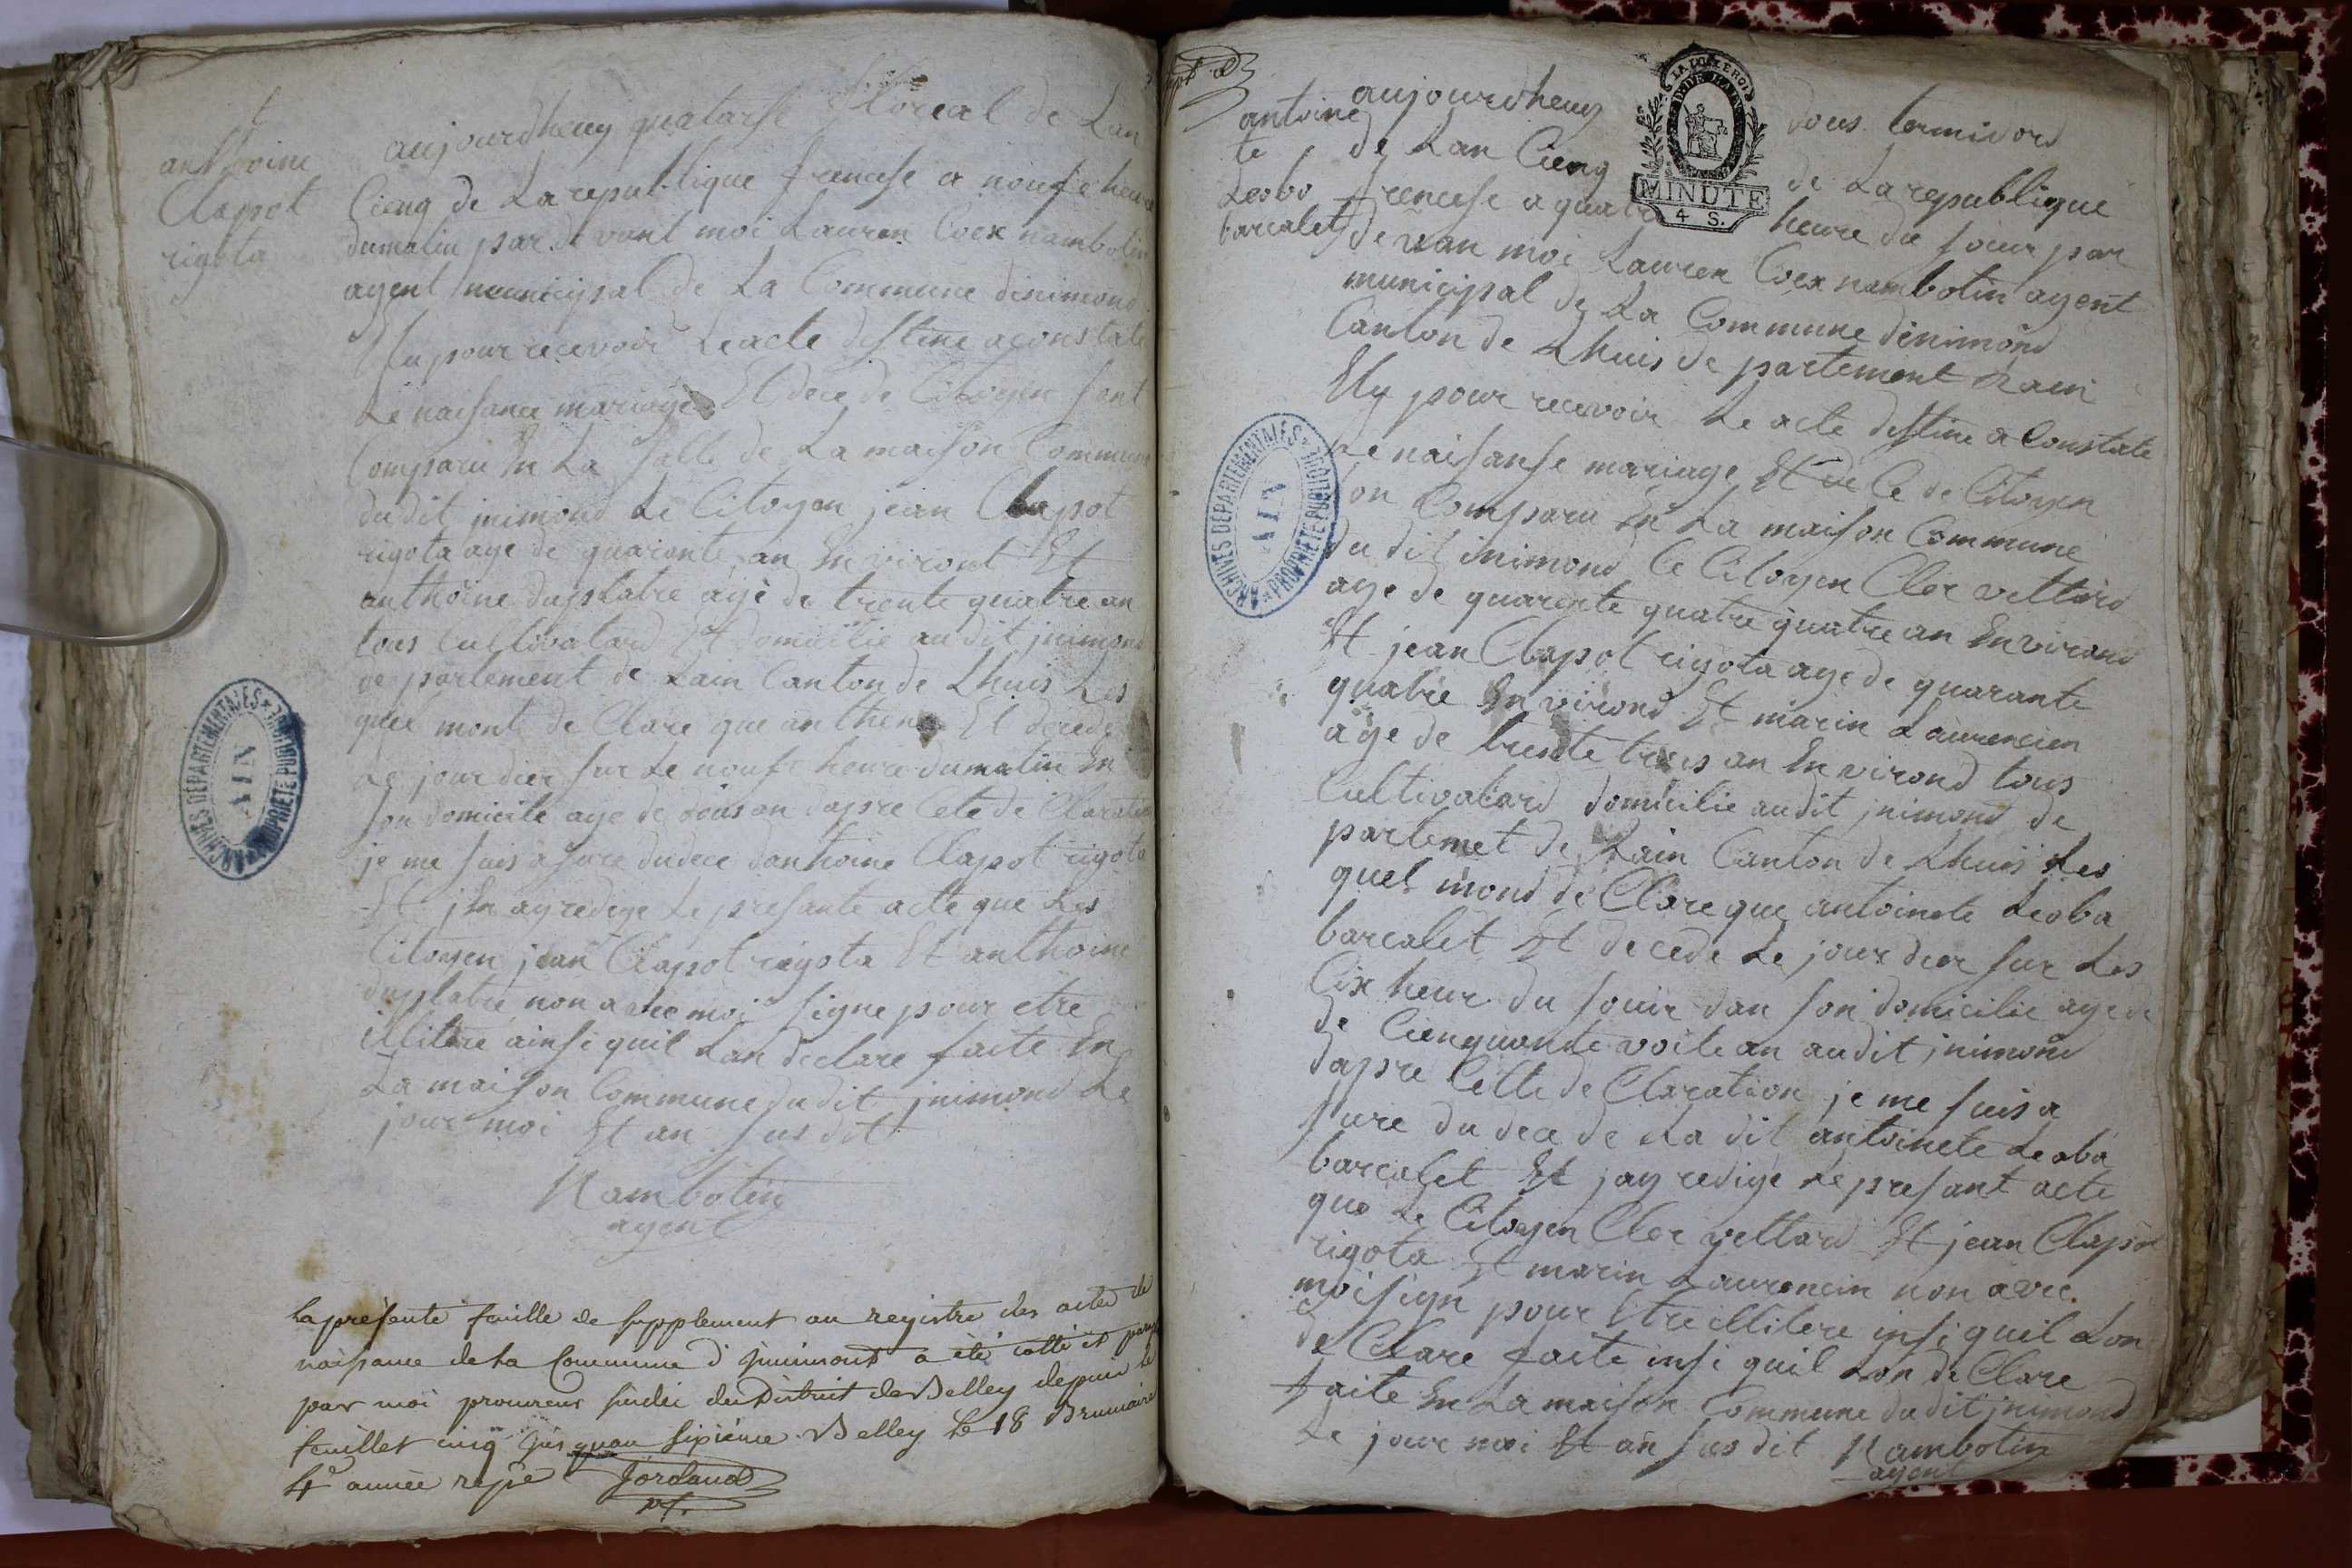 anthoine
Clapot
rigota
aujourdheuy quatorse floreal de Lan
Cienq de La republique francese a noufe heure
dumatin par de vant moi Lauren Coex nambotin
agent municipal de La Commune dinimond
Elu pour recevoir Le acte destine a constate
Le naisance mariage Et dece de Citoyen sont
Comparu En La salle de La maison Commune
dudit inimond Le Citoyen jean Clapot
rigota age de quaronte an En viront Et
anthoine duplatre age de trente quatre an
tous Cultivatard Et domicilie au dit jnimond
de partement de Lain Canton de Lhuis Les
quel mont de Clare que anthene Et decede
Le jour dier sur Le noufe heure dumatin En
son domicile age de dous an dapre Cete de Claration
je me suis a sure du dece danthoine Clapot rigota
Et jEn ay redege Le presante acte que Les
Citoyen jean Clapot rigota Et anthoine
duplatre non avec moi signe pour etre
illitere ainsi quil Lan declare faite En
La maison Commune du dit jnimond Le
jour moi Et an sus dit
Nambotin
agent
la présente feuille de supplement au registre des actes de
naissance de la Commune d'jnimont a été cotté et paraphé
par moi procureur sindic du District de Belley depuis le
feuillet cinq jusquau sixiéme. Belley le 18 Brumaire
4e année rep.e Jordand
antoine
te
Leobo
barcalet
aujourdheuy dous termidord
de Lan Cienq de La republique
frencese a quatre heure du souir par
de van moi Lauren Coex nambotin agent
municipal de La Commune dinimond
Canton de Lhuis de partement Lain
Elu pour recevoir Le acte destine a Constate
Le naisanse mariage Et de Ce de Citoyen
on Comparu En La maison Commune
du dit inimond Le Citoyen Cler vettard
age de quarente quatre quatre an Environd
Et jean Clapot rigota age de quarante
quatre En virond Et marin Laurencien
age de trente trois an En virond tous
Cultivatard domicilie audit jnimond de
partemet de Lain Canton de Lhuis Les
quel mond de Clare que antoinete Leoba
barcalet Et de cede Le jour dier sur Les
Cix heur du souir dan son domicilie age de
de Cienquante voite an audit jnimond
dapre Cette de Claration je me suis a
sure du dece de La dit antoinete Leoba
barcalet Et jay redige Le presant acte
que Le Citoyen Cler vettard Et jean Clapot
rigota Et marin Laurencin non avec
moi sign pour Etre illitere insi quil Lon
de Clare faite insi quil Lon de Clare
faite En La maison Commune du dit jnimond
Le jour moi Et an sus dit Nambotin
agent
LA LOI LE ROI
DT. DE L'AIN
MINUTE
4 S.
ARCHIVES DEPARTEMENTALES
AIN
PROPRIETE PUBLIQUE
ARCHIVES DEPARTEMENTALES
AIN
PROPRIETE PUBLIQUE